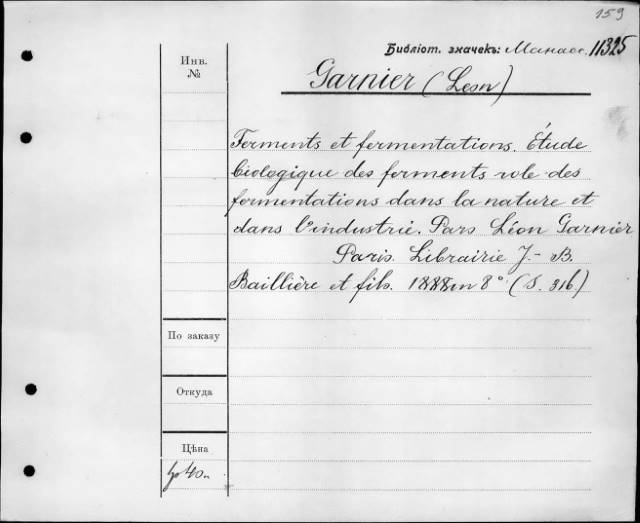 159
Библіот. значекъ: Манасс. 11325
Инв.
№
Garnier (Leon)
Ferments et fermentations. Étude
biologique des ferments role des
fermentations dans la nature et
dans l'industrie. Pars Léon Garnier
Paris. Librairie J.-B.
Baillière et fils. 1888 in 8° (S. 316)
По заказу
Откуда
Цѣна
40к